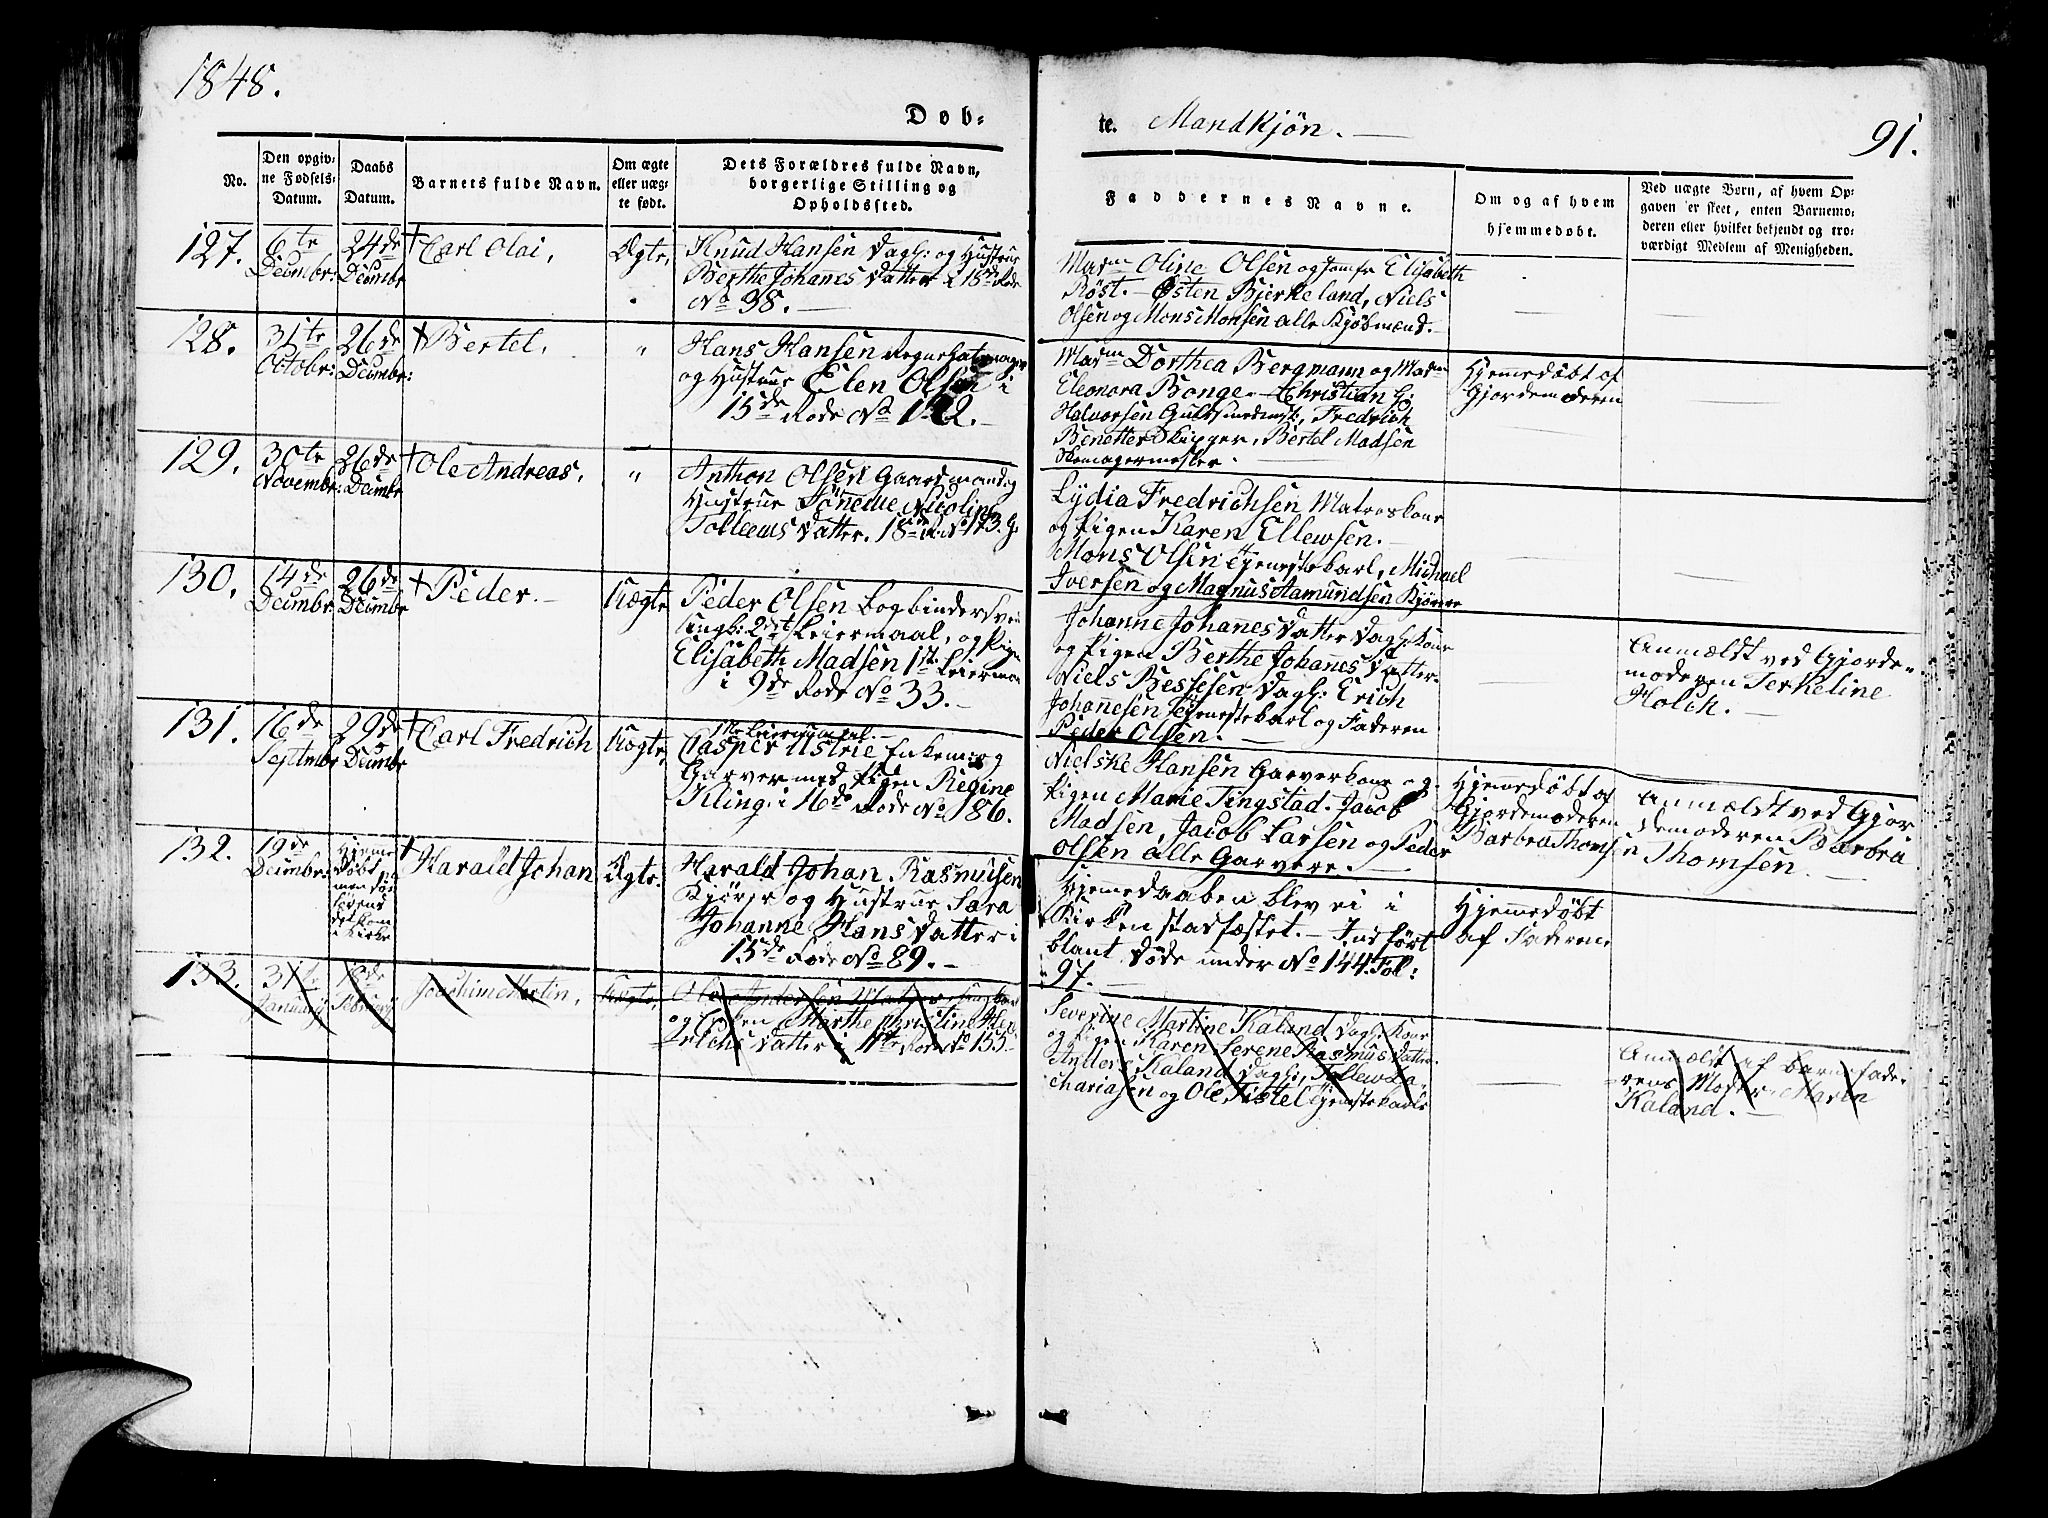 1848.
Døb-
te. Mandkjøn. —
91.
No.
Den opgiv-
ne Fødsels-
Datum.
Daabs
Datum.
Barnets fulde Navn.
Om ægte
eller uæg-
te født.
Dets Forældres fulde Navn,
borgerlige Stilling og
Opholdssted.
Faddernes Navne.
Om og af hvem
hjemmedøbt.
Ved uægte Børn, af hvem Op-
gaven er skeet, enten Barnemo-
deren eller hvilket bekjendt og tro-
værdigt Medlem af Menigheden.
127.
6te
Decmbr:
24de
Decmbr
† Carl Olai,
Ægte,
Knud Hansen Dagl: og Hustrue
Berthe Johanes Datter i 18de Rode
No 98. —
Madm Oline Olsen og Jomfr Elisabeth
Röst. — Østen Bjerkeland, Niels
Olsen og Mons Monsen alle Kjøbmænd.
128.
31te
Octobr:
26de
Decmbr:
† Bertel,
"
Hans Hansen
og Hustrue Elen Olsen i
15de Rode No
Madm Dorthea Bergmann og Madm
Eleonora Bonge. — Christian G:
Halvorsen Guldsmedmst:, Fredrich
Benetter Skipper, Bertel Madsen
Skomagermester.
Hjemmedøbt af
Gjordemoderen
129.
30te
Novembr:
26de
Decmbr
† Ole Andreas,
"
Anthon Olsen Gaardmand og
Hustrue Nicoline
Tolleivs Datter. 18de R. No 173.
Lydia Fredrichsen Matroskone
og Pigen Karen Ellewsen. —
Mons Olsen Tjenestekarl, Michael
Iversen og Magnus Aamundsen Kjørere
130.
14de
Decmbr
26de
Decmbr
† Peder. —
Uægte
Peder Olsen Bogbindersvend
ungk: 2det Leiermaal, og Pigen
Elisabeth Madsen 1ste Leiermaal
i 9de Rode No 33. —
Johanne Johanes Datter Dagl: Kone
og Pigen Berthe Johanes Datter.
Niels Bessesen Dagl: Erich
Johanesen Tjenestekarl og Faderen
Peder Olsen. —
Anmeldt ved Gjorde-
moderen Terkeline
Holck. —
131.
16de
Septmbr
29de
Decmbr
† Carl Fredrich
Uægte,
1ste Leiermaal. —
Casper Ustrie Enkem: og
Garver med Pigen Regine
Kling, i 16de Rode No 186.
Nielske Hansen Garverkone og
Pigen Marie Tingstad. Jacob
Madsen, Jacob Larsen og Peder
Olsen alle Garvere. —
Hjemmedøbt af
Gjordemoderen
Barbra Thomsen
Anmældt ved Gjor-
demoderen Barbra
Thomsen. —
132.
19de
Decmbr:
Hjeme
døbt
men dø
de
i Kirke
† Harald Johan
Ægte.
Harald Johan Rasmusen
Kjører og Hustrue Sara
Johanne Hans Datter i
15de Rode No 89. —
Hjemedaaben blev ei i
Kirken stadfæstet. — Indført
blant Døde under No 144. Fol:
97. —
Hjemedøbt
af Faderen
133.
31te
January
18de
February
Joachim Martin,
Uægte,
Ole Andersen
og Pigen Marthe Christine
Erichs Datter i 11te Rode No 155
Severine Martine Kaland Dagl: Kone
og Pigen Karen Serene Rasmus Datter.
Anders Kaland Dagl:, Tollew Za-
chariasen og Ole Tistel Tjenestekarle
Anmældt af barnefade-
rens Moder Maren
Kaland. —